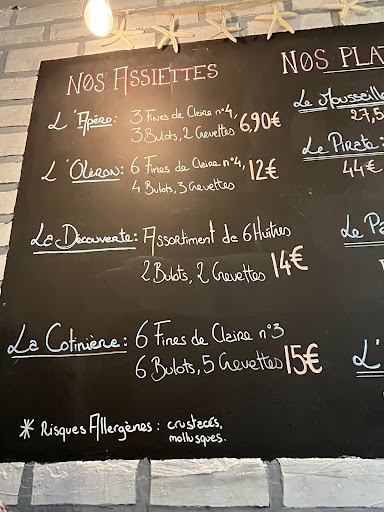 NOS ASSIETTES
L'Apéro: 3 Fines de Claire n°4,
3 Bulots, 2 Crevettes 6,90€
L'Oléron: 6 Fines de Claire n°4,
4 Bulots, 3 Crevettes 12€
La Découverte: Assortiment de 6 Huîtres
2 Bulots, 2 Crevettes 14€
La Cotinière: 6 Fines de Claire n°3
6 Bulots, 5 Crevettes 15€
* Risques Allergènes: crustacés,
mollusques.
NOS PLA
Le Mousseille
27,5
Le Pirate:
44€
Le Pê
L'